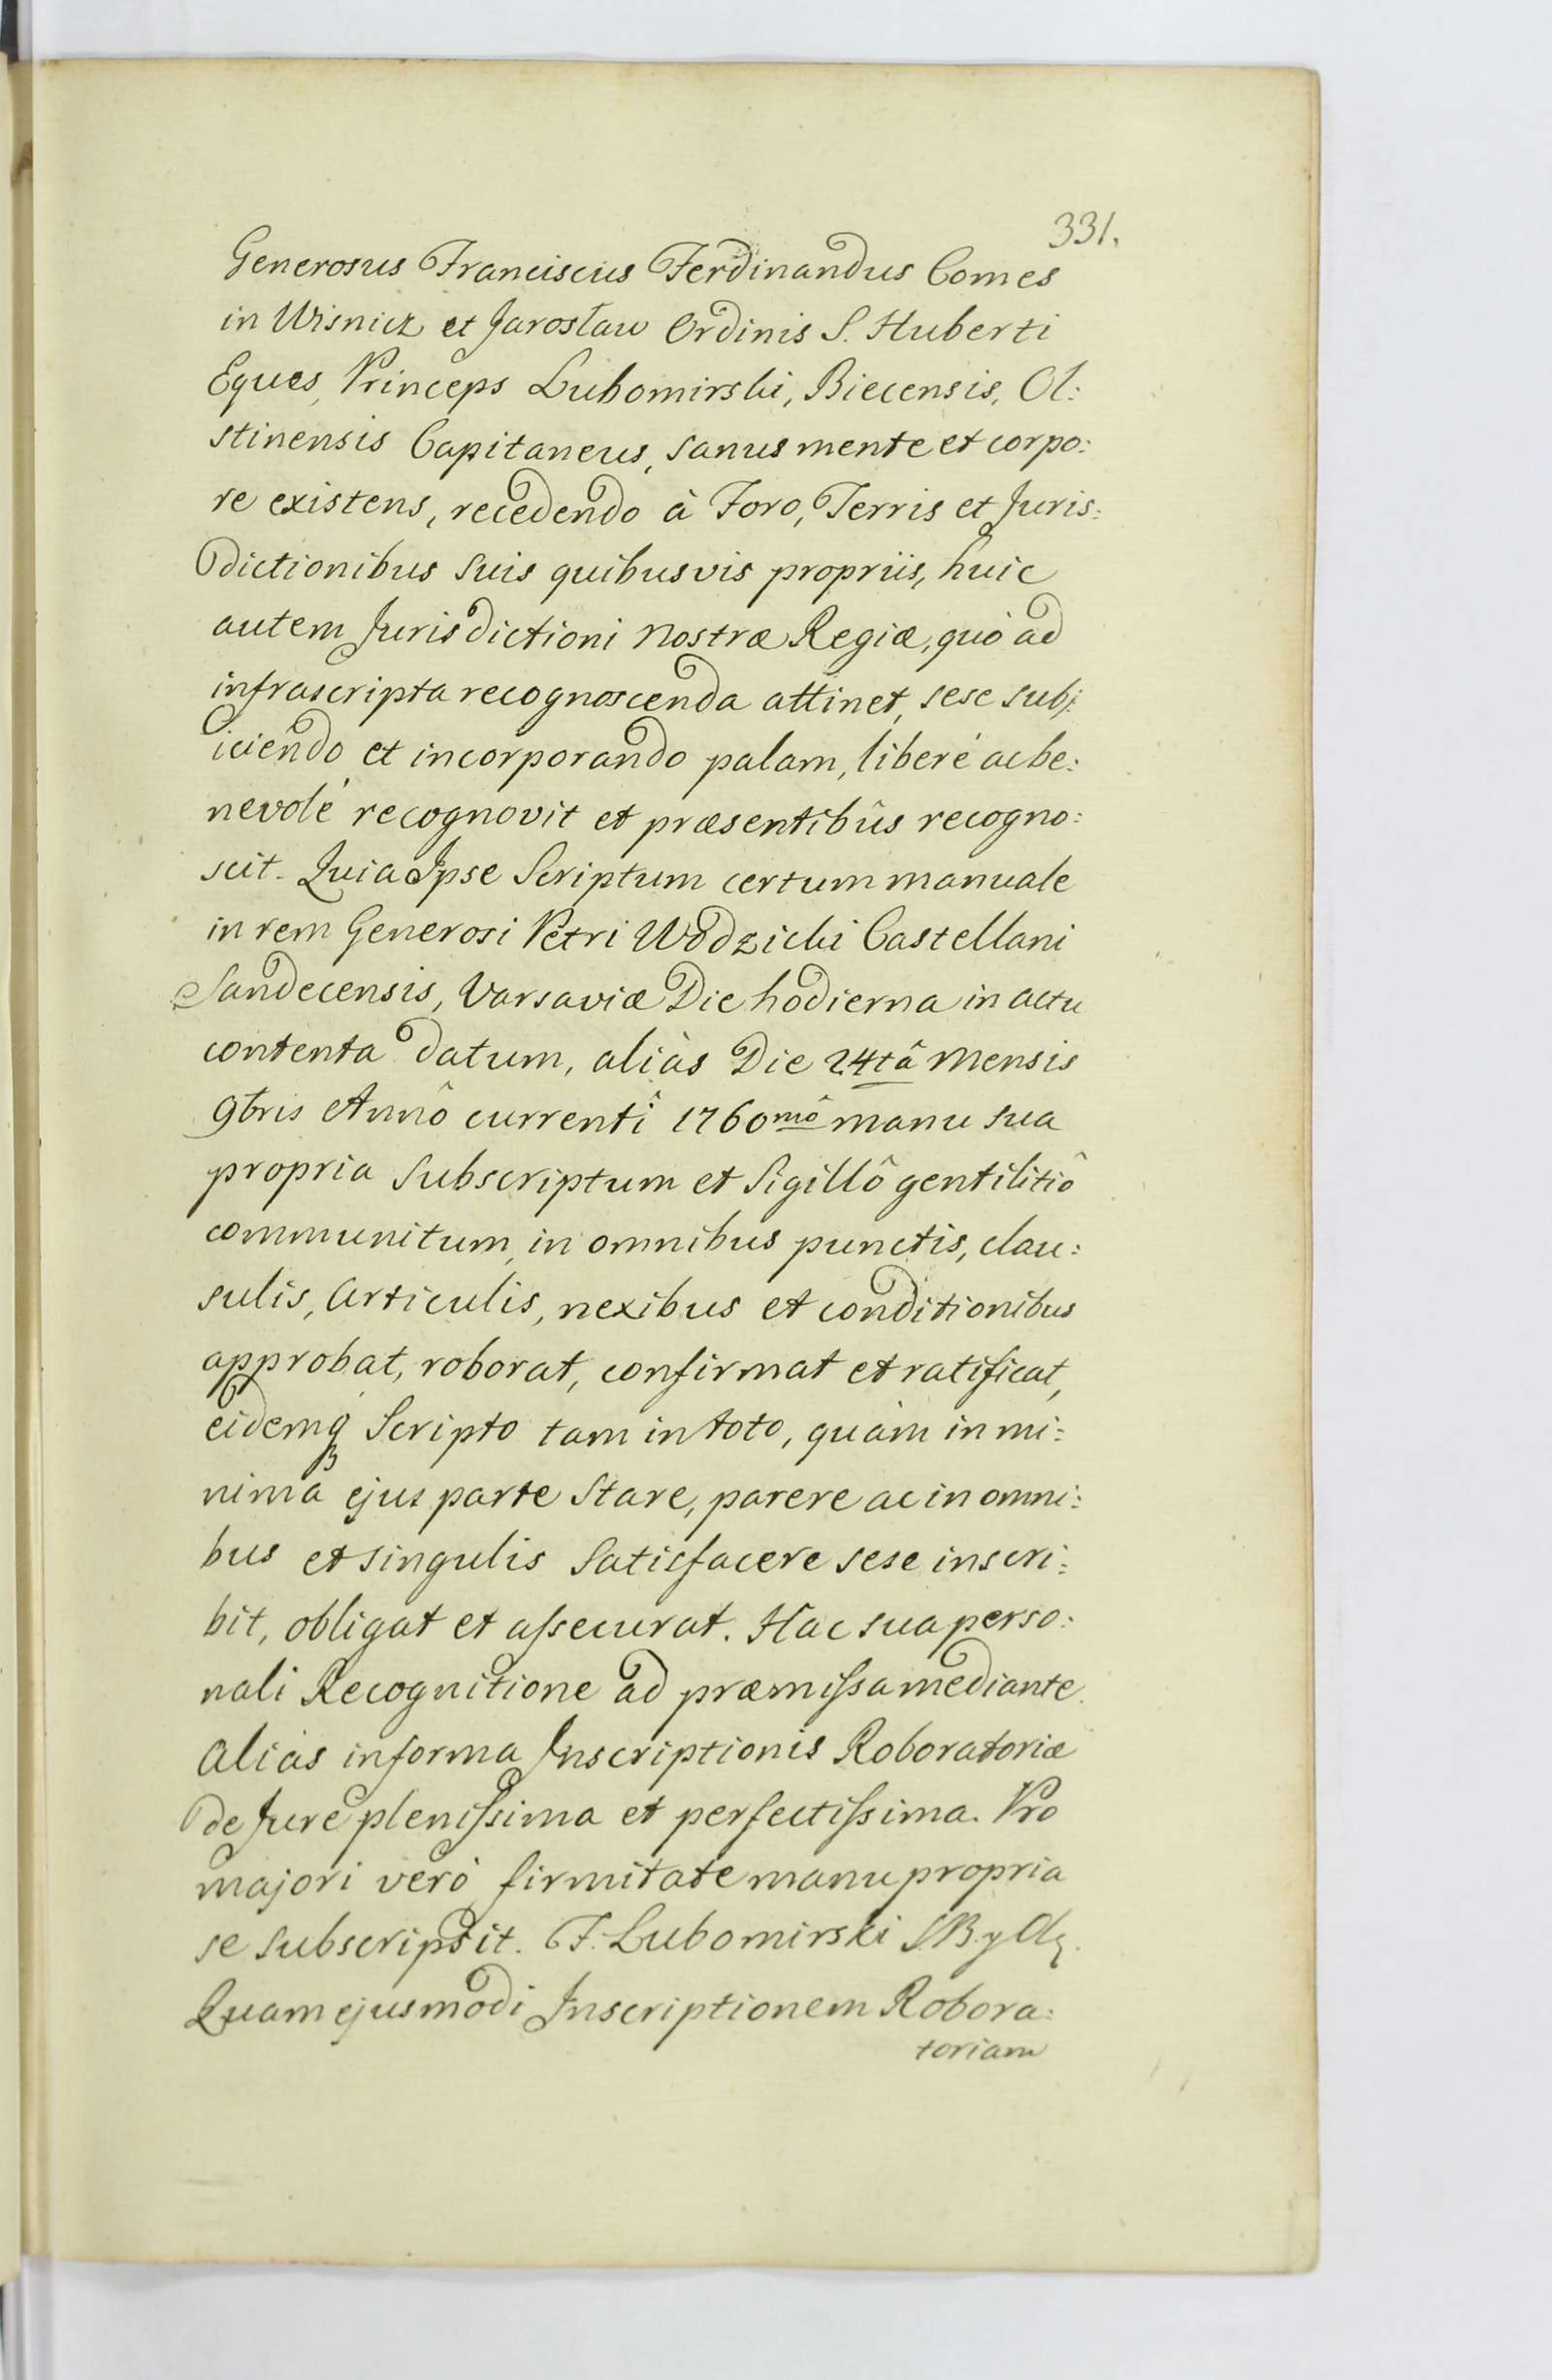 331.
Generosus Franciscus Ferdinandus Comes
in Wisnicz et Jarosław Ordinis S. Huberti
Eques, Princeps Lubomirski, Biecensis, Ol:
stinensis Capitaneus, sanus mente et corpo:
re existens, recedendo à Foro, Terris et Juris:
dictionibus suis quibusvis propriis, huic
autem Jurisdictioni nostræ Regiæ, quò ad
infrascripta recognoscenda attinet, sese subj:
iciendo et incorporando palam, liberé ac be:
nevolé recognovit et præsentibûs recogno:
scit. Quia Ipse Scriptum certum manuale
in rem Generosi Petri Wodzicki Castellani
Sandecensis, Varsaviæ Die hodierna in actu
contenta datum, aliàs Die 24tâ Mensis
9bris Annô currentî 1760mô manu sua
propria subscriptum et Sigillô gentilitiô
communitum, in omnibus punctis, clau:
sulis, Articulis, nexibus et conditionibus
approbat, roborat, confirmat et ratificat,
eidemq Scripto tam in toto, quàm in mi:
nimâ ejus parte Stare, parere ac in omni:
bus et singulis Satisfacere sese inscri:
bit, obligat et aſsecurat. Hac sua perso:
nali Recognitione ad præmiſsa mediante.
Aliàs in forma Inscriptionis Roboratoriæ
de Jure pleniſsima et perfectiſsima. Pro
majori verò firmitate manu propria
se subscripsit. F. Lubomirski S.B. y
Quam ejusmodi Inscriptionem Robora:
toriam